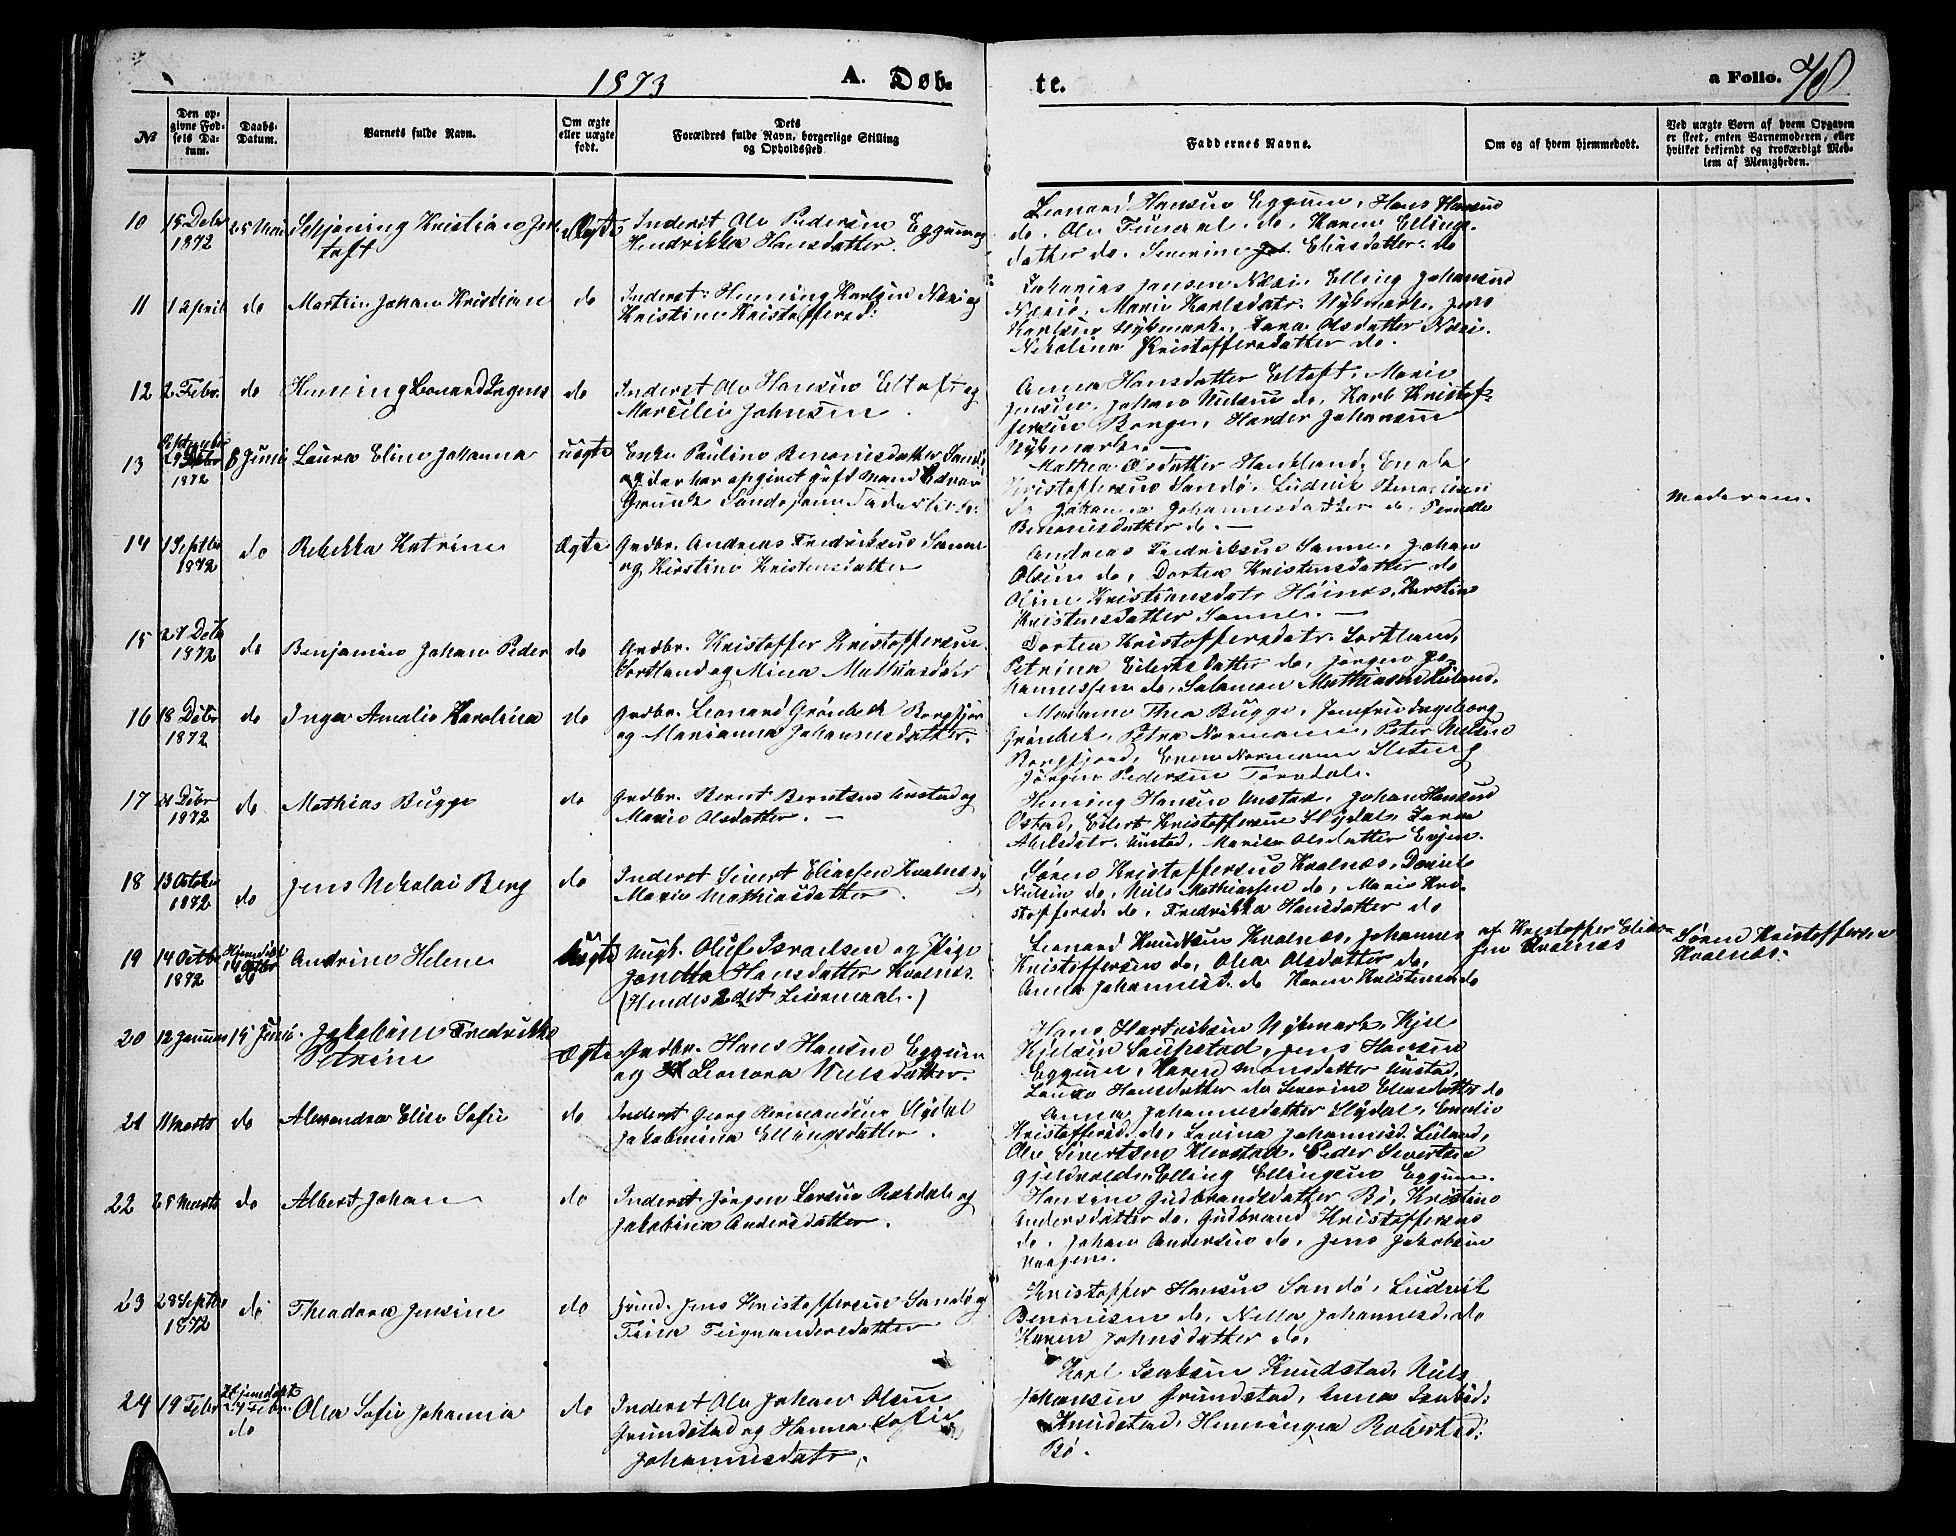 1873
A. Døb-
te.
a Folio. 78
№
Den op-
givne Fød-
sels Da-
tum.
Daabs-
Datum.
Barnets fulde Navn.
Om ægte
eller uægte
født.
Dets
Forældres fulde Navn, borgerlige Stilling
og Opholdssted.
Faddernes Navne.
Om og af hvem hjemmedøbt.
Ved uægte Børn af hvem Opgaven
er skeet, enten Barnemoderen, eller
hvilket bekjendt og troværdigt Med-
lem af Menigheden.
10 15 Debr 1872 25 Mai Kristian Jen
toft
Ægte Inderst Ole Pedersen Eggum og
Hendrikka Hansdatter.
Leonard Hansen Eggum, Hans Hansen
do. Ole do, Karen Ellings-
datter do. Severine Eliasdatter do
11 1 April do Martin Johan Kristian do
Inderst: Henning Karlsen Næs og
Kristine Kristoffersd:
Zakarias Jansen Næs, Elling Johansen
Marie Karlsdatr. Nykmark, Jens
Karlsen Nykmark, Lara Olsdatter
Nikolina Kristoffersdatter do.
12 2 Febr. do Henning Leonard Ingens do
Inderst Ole Hansen Eltoft og
Marcelie Johnsen.
Anna Hansdatter Eltoft, Marie
Jensen, Johan Nielsen do, Karl Kristof-
fersen Borge, Harder Johansen
Nykmark. —
13 29 1872 8 Juni Laura Eline Johanna uægte
Enke Pauline Benonisdatter Sandø
og der har opgivet gift Mand
Sandø som
Mathea Olsdatter Haukland,
Kristoffersen Sandø, Ludvik Benonisen
do Johanna Johannesdatter do,
Benonisdatter do. —
Moderen.
14 1 Septbr 1872 do Rebekka Katrine Ægte
Grdbr. Andreas Fredriksen Sanne
og Kirstine Kristensdatter
Andreas Fredriksen Sanne, Johan
Olsen do, Dortea Kristensdatter do
Oline Kristiansdatr Høines, Kirstine
Kristensdatter Sanne. —
15 27 Debr 1872 do Benjamin Johan Peder do
Grdbr. Kristoffer Kristoffersen
Lortland og Mina Mathiasdatr
Dortea Kristoffersdatr. Lortland,
Petrina Eilertsdatter do, Jørgen Jo-
hannessen do, Salamon Mathiasen Liland.
16 18 Debr 1872 do Inga Amalie Karolina do
Grdbr. Leonard Grønbeck Borgfjor
og Marianna Johannesdatter.
Madame Thea Bugge, Jomfru Ingeborg
Grønbek, Petra Normann, Peter Nielsen
Borgfjord, Even Normann
Jørgen Pedersen Torvdal.
17 21 Debr 1872 do Mathias Bugge do
Grdbr. Bernt Berntsen Unstad og
Marie Olsdatter. —
Henning Hansen Unstad, Johan Hansen
Ostad, Eilert Kristoffersen Slydal, Lava
Abelsdatr. Unstad, Olsdatter Evjen.
18 13 October 1872 do Jens Nikolai Berg do
Inderst Sivert Eliassen Kvalnes og
Marie Mathiasdatter.
Søren Kristoffersen Kvalnes,
Nielsen do, Nils Mathiassen do, Marie Kri-
stoffersd. do, Fredrikka Hansdatter do
19 14 Octbr 1872 Hjemdøbt 14 do Andrine Helene Uægte
Ungk. Oluf Israelsen og Pige
Jonetta Hansdatter Kvalnes.
(Hendes 2det Leiermaal.)
Leonard Knudsen Kvalnes, Johannes
Kristoffersen do, Olea Olsdatter do,
Anna Johannesd. do Karen Kristensen do
af Kristoffer Elias-
sen Kvalnes
Søren Kristoffersen
Kvalnes.
20 12 Januar 15 Juni. Jakobine Fredrikke
Petrine
Ægte Grdbr. Hans Hansen Eggum
og Leonora Nielsdatter.
Hans Hartviksen Nykmark, Kjel
Kjelsen Saupstad, Jens Hansen
Eggum, Karen Monsdatter Unstad,
Laura Hansdatter do Severine Eliasdatter do
21 11 Marts do Alexandra Elise Sofie do
Inderst Georg Slydal
Jakobmina Ellingsdatter.
Anna Johannesdatter Slydal, Emelie
Kristoffersd. do, Lovina Johannesd. Liland,
Ole Sivertsen Klevstad, Peder Sivertsen
Elling Ellingsen Eggum.
22 25 Marts do Albert Johan do
Inderst Jørgen Larsen og
Jakobina Andersdatter.
Hansine Gudbrandsdatter Bø, Kristine
Andersdatter do, Gudbrand Kristoffersen
do, Johan Andersen do, Jens Jakobsen
Haagen.
23 28 Septbr 1872 do Theodora Jensine do
Jens Kristoffersen Sandø og
Trina
Kristoffer Hansen Sandø, Ludvik
Benonisen do, Nella Johannesd. do
Karen Johnsdatter do,
24 19 Febr Hjemdøbt 24 Febr. do Olea Sofie Johanna do
Inderst Ole Johan Olsen
Grundstad og Hanna Sofie
Johannesdatr.
Karl Isaksen Knudstad, Nils
Johansen Grundstad, Anna Isaksd:
Knudstad, Henningea Robertsd:
Bø.